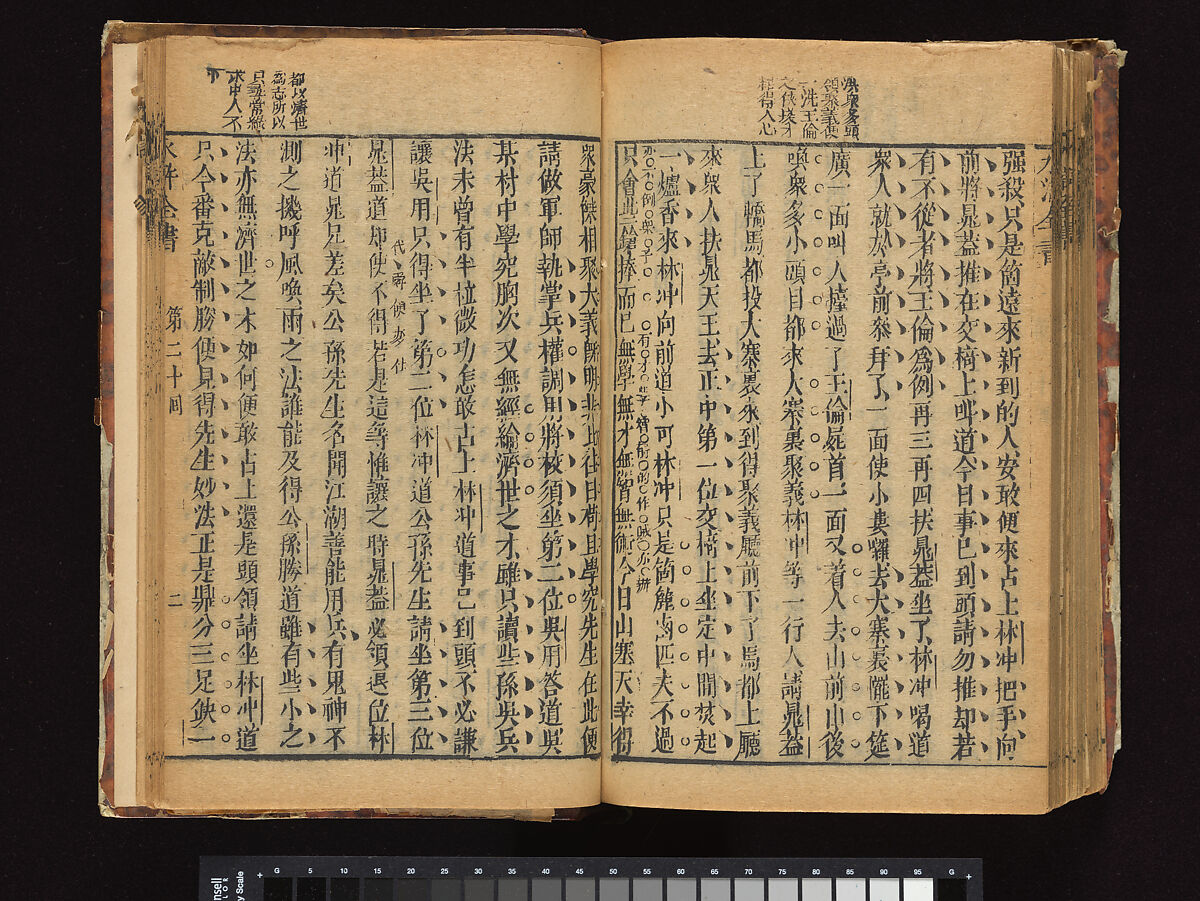 強殺只是箇遠來新到的人安敢便來占上林冲把手向
前將晁葢推在交椅上呌道今日事已到頭請勿推却若
有不從者將王倫爲例再三再四扶晁葢坐了林冲喝道
衆人就於亭前叅拜了一面使小嘍囉去大寨裏擺下筵
一面叫人擡過了王倫屍首一面又着人去山前山後
喚衆多小頭目都來大寨裏聚義林冲等一行人請晁葢
上了轎馬都投大寨裏來到得聚義廳前下了馬都上廳
來衆人扶晁天王去正中第一位交椅上坐定中間焚起
一爐香來林冲向前道小可林冲只是箇麄鹵匹夫不過
只會些鎗棒而已無學無才無智無術今日山寨天幸得
衆豪傑相聚大義旣明非比往日苟且學究先生在此便
請做軍師執掌兵權調用將校須坐第二位吳用答道吳
某村中學究胸次又無經綸濟世之才雖只讀些孫吳兵
法未曾有半粒微功怎敢占上林冲道事已到頭不必謙
讓吳用只得坐了第二位林冲道公孫先生請坐第三位
晁葢道却使不得若是這等推讓之時晁葢必須退位林
冲道晁兄差矣公孫先生名聞江湖善能用兵有鬼神不
測之機呼風喚雨之法誰能及得公孫勝道雖有些小之
法亦無濟世之才如何便敢占上還是頭領請坐林冲道
只今番克敵制勝便見得先生妙法正是鼎分三足缺一
都以濟世
為志所以
只尋常綠
林中人不
水滸全書
第二十回
二